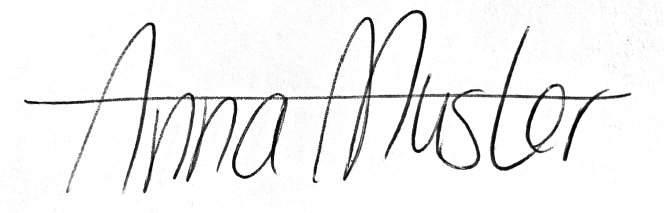 Anna Muster